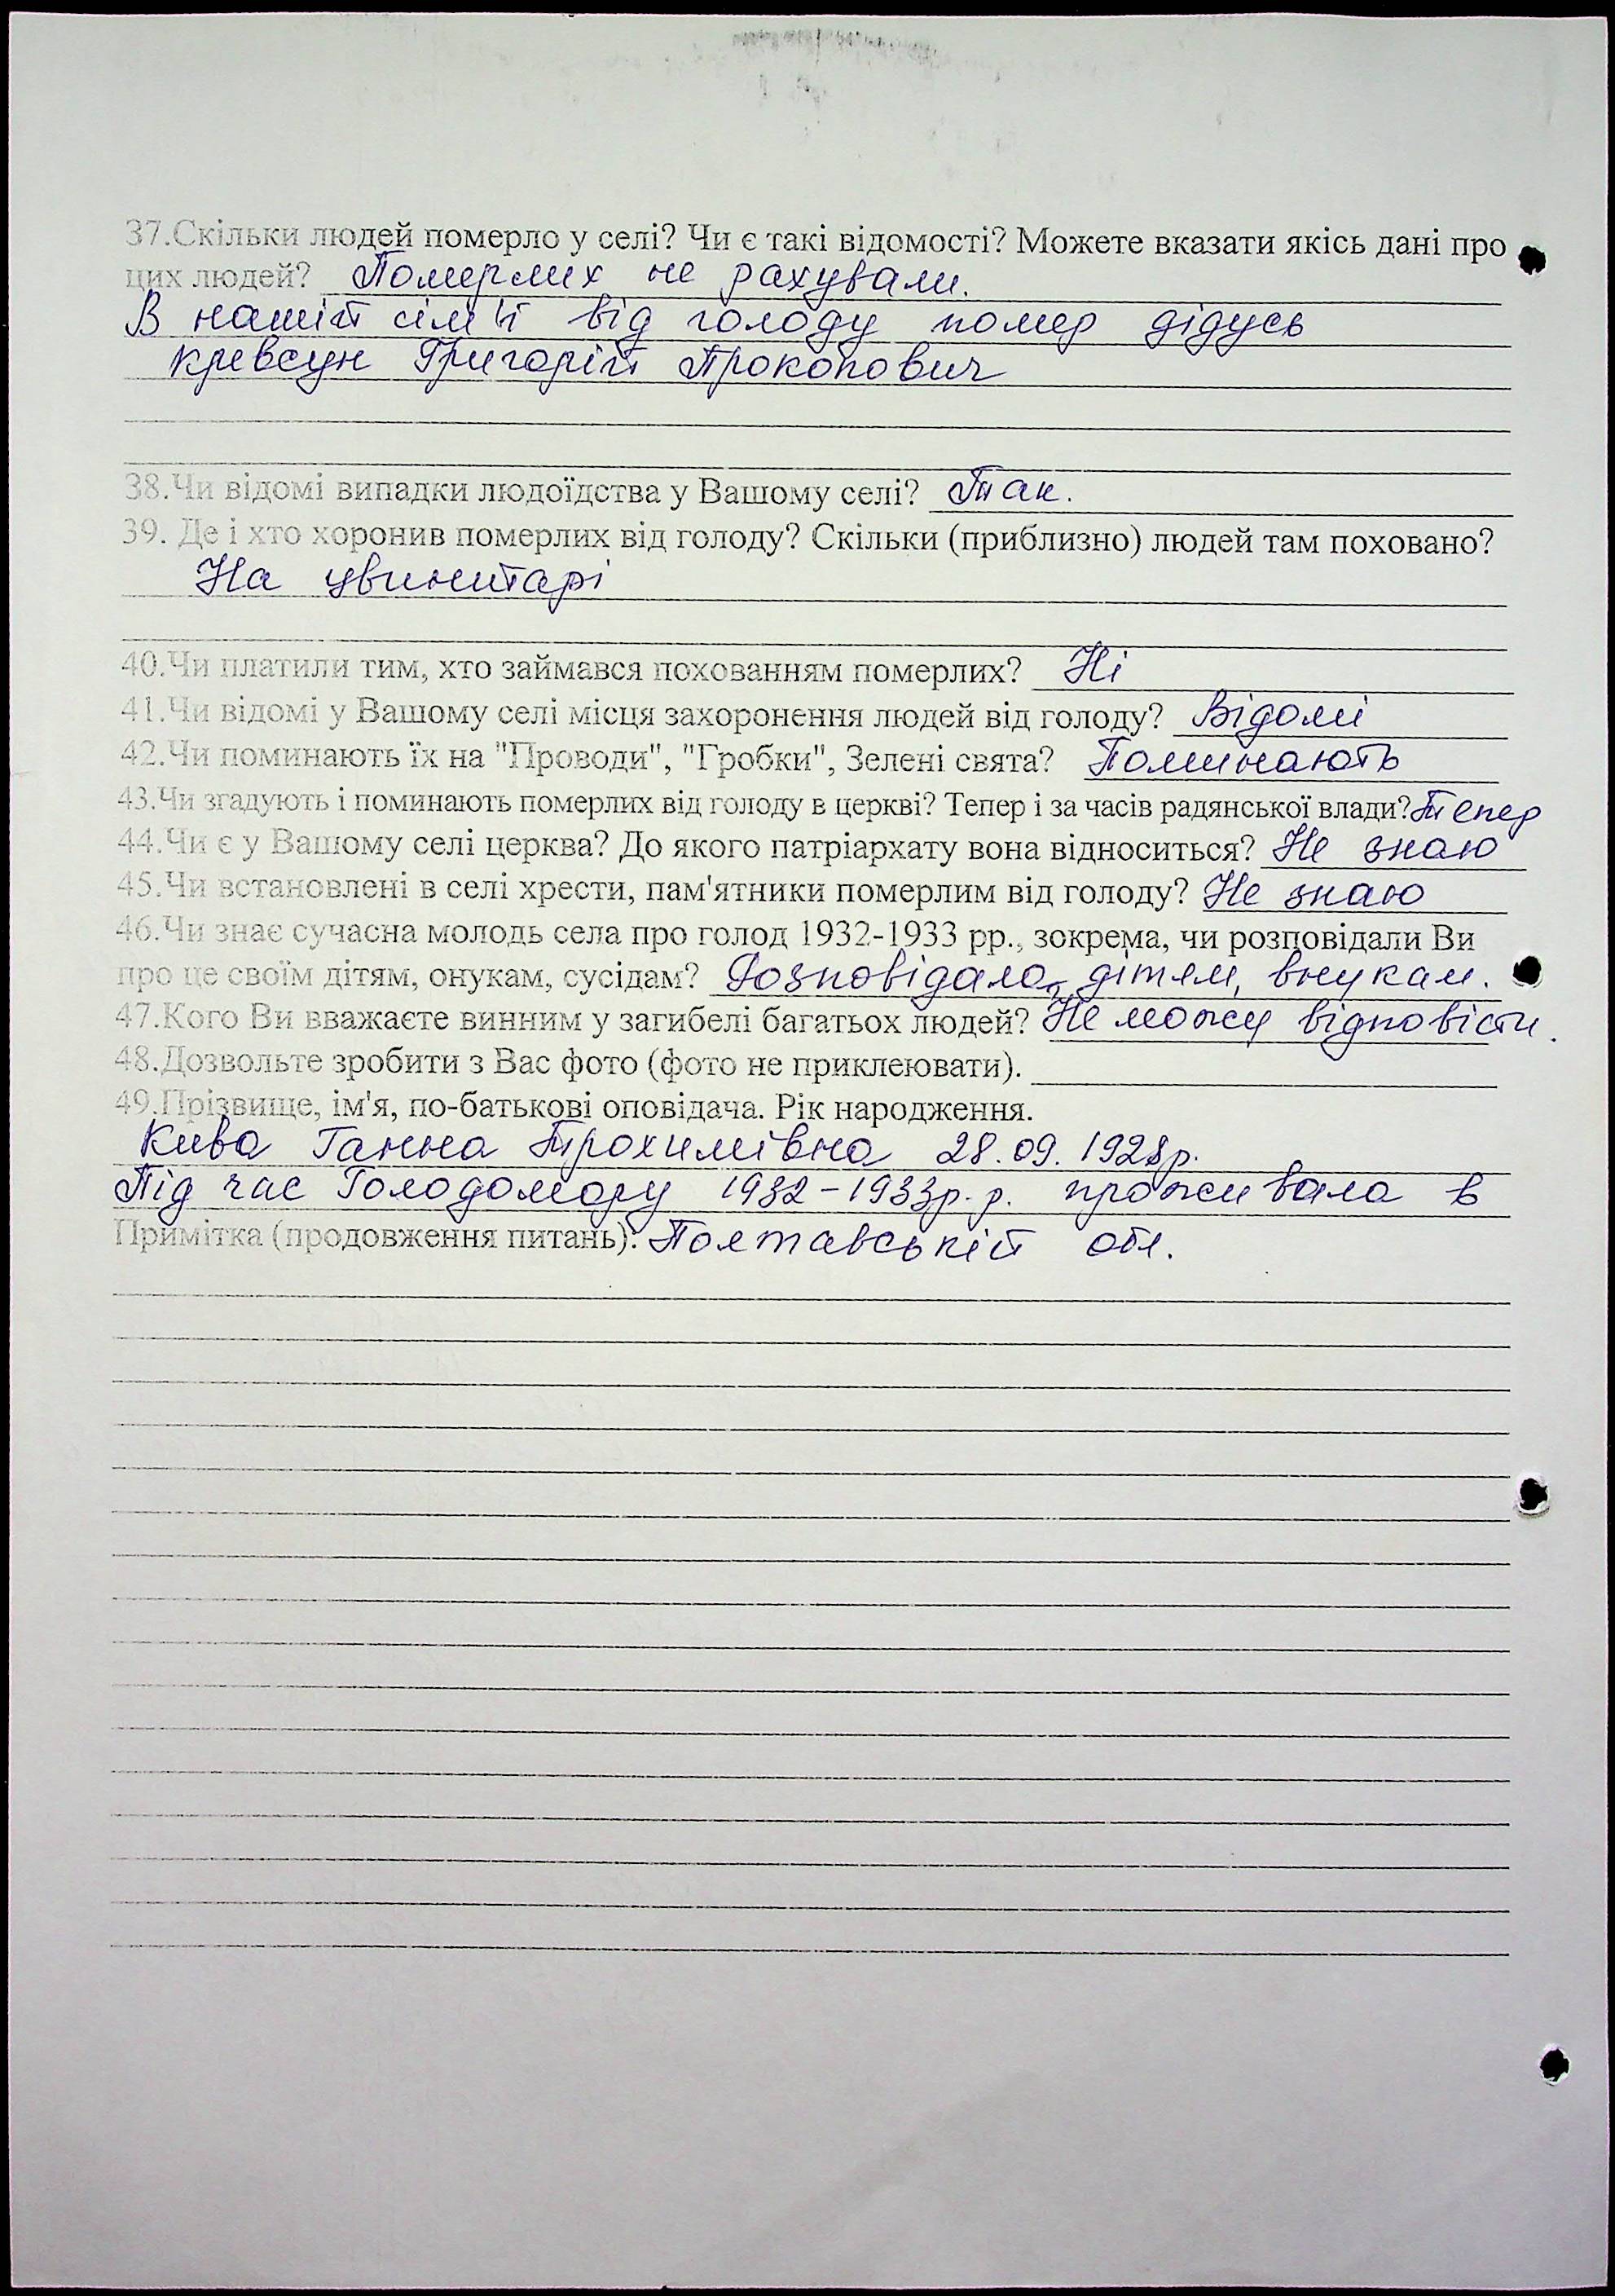 37.Скільки людей померло у селі? Чи є такі відомості? Можете вказати якісь дані про
цих людей? Померлих не рахували.
В нашій сім'ї від голоду помер дідусь
Кревсун Григорій Прокопович
38.Чи відомі випадки людоїдства у Вашому селі? Так.
39. Де і хто хоронив померлих від голоду? Скільки (приблизно) людей там поховано?
На цвинитарі
40.Чи платили тим, хто займався похованням померлих? Ні
41.Чи відомі у Вашому селі місця захоронення людей від голоду? Відомі
42.Чи поминають їх на "Проводи", "Гробки", Зелені свята? Поминають
43.Чи згадують і поминають померлих від голоду в церкві? Тепер і за часів радянської влади? Тепер
44.Чи є у Вашому селі церква? До якого патріархату вона відноситься? Не знаю
45.Чи встановлені в селі хрести, пам'ятники померлим від голоду? Не знаю
46.Чи знає сучасна молодь села про голод 1932-1933 рр., зокрема, чи розповідали Ви
про це своїм дітям, онукам, сусідам? Розповідала дітям, внукам.
47.Кого Ви вважаєте винним у загибелі багатьох людей? Не можу відповісти.
48.Дозвольте зробити з Вас фото (фото не приклеювати).
49.Прізвище, ім'я, по-батькові оповідача. Рік народження.
Кива Ганна Трохимівна 28.09.1928р.
Під час Голодомору 1932-1933р.р. проживала в
Примітка (продовження питань): Полтавській обл.